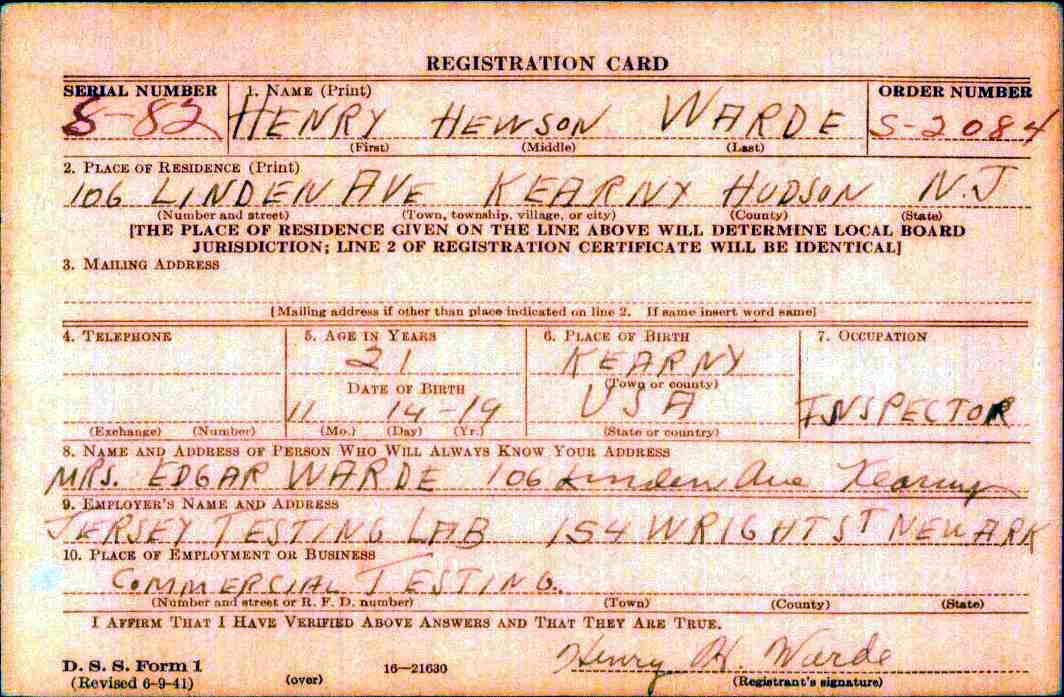 REGISTRATION CARD
SERIAL NUMBER 1. NAME (Print) ORDER NUMBER
S-82 HENRY HEWSON WARDE S-2084
(First) (Middle) (Last)
2. PLACE OF RESIDENCE (Print)
106 LINDEN AVE KEARNY HUDSON N.J
(Number and street) (Town, township, village, or city) (County) (State)
[THE PLACE OF RESIDENCE GIVEN ON THE LINE ABOVE WILL DETERMINE LOCAL BOARD
JURISDICTION; LINE 2 OF REGISTRATION CERTIFICATE WILL BE IDENTICAL]
3. MAILING ADDRESS
[Mailing address if other than place indicated on line 2. If same insert word same]
4. TELEPHONE 5. AGE IN YEARS 6. PLACE OF BIRTH 7. OCCUPATION
21 KEARNY
DATE OF BIRTH (Town or county)
11 14-19 USA INSPECTOR
(Exchange) (Number) (Mo.) (Day) (Yr.) (State or country)
8. NAME AND ADDRESS OF PERSON WHO WILL ALWAYS KNOW YOUR ADDRESS
MRS. EDGAR WARDE 106 Linden Ave Kearny
9. EMPLOYER'S NAME AND ADDRESS
JERSEY TESTING LAB 154 WRIGHT ST NEWARK
10. PLACE OF EMPLOYMENT OR BUSINESS
COMMERCIAL TESTING.
(Number and street or R. F. D. number) (Town) (County) (State)
I AFFIRM THAT I HAVE VERIFIED ABOVE ANSWERS AND THAT THEY ARE TRUE.
Henry H. Warde
D. S. S. Form 1 16—21630
(Revised 6-9-41) (over) (Registrant's signature)